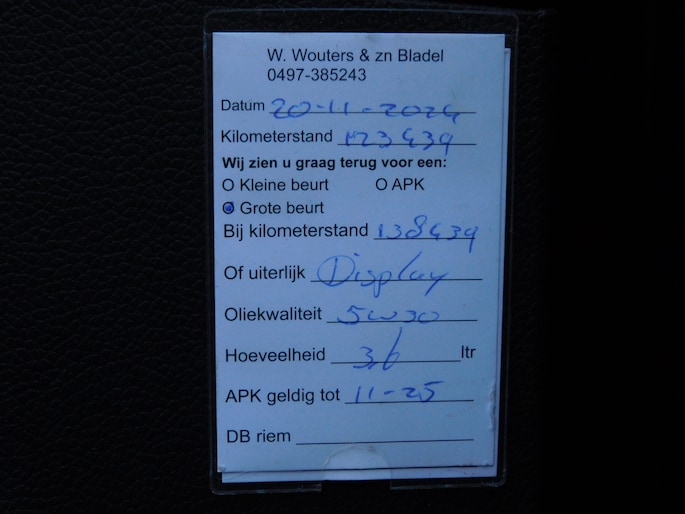 W. Wouters & zn Bladel
0497-385243
Datum 20-11-2024
Kilometerstand 123439
Wij zien u graag terug voor een:
O Kleine beurt O APK
O Grote beurt
Bij kilometerstand 138439
Of uiterlijk Display
Oliekwaliteit 5W30
Hoeveelheid 3,6 ltr
APK geldig tot 11-25
DB riem